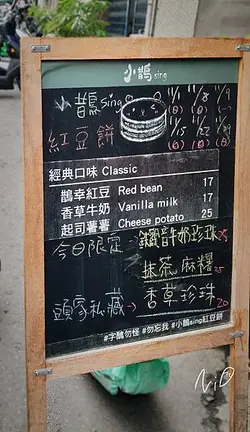 小鵲sing
鵲sing
11/1 11/8 11/9
紅豆餅
11/15
經典口味 Classic
鵲幸紅豆 Red bean 17
香草牛奶 Vanilla milk 17
起司薯薯 Cheese potato 25
今日限定→ 鐵牛奶珍珠 25
抹茶麻糬 25
頭家私藏→ 香草珍珠 20
#字醜勿怪 #勿忘我 #小鵲sing紅豆餅